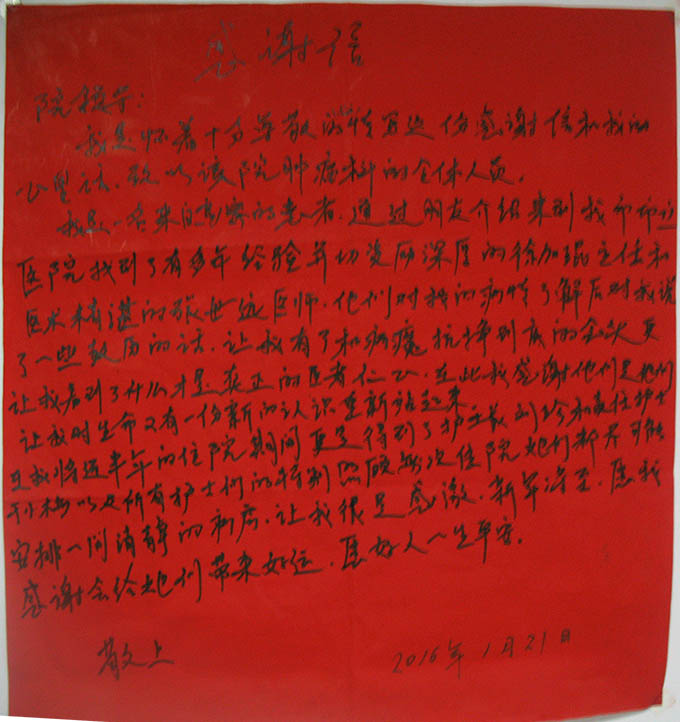 感谢信
院领导：
我是怀着十分尊敬的情写这份感谢信和我的
心里话，致以该院肿瘤科的全体人员。
我是一名来自的患者，通过朋友介绍来到我市
医院找到了有多年经验并切资历深厚的徐加强主任和
医术精湛的张世远医师，他们对我的病情了解后对我说
了一些鼓励的话，让我有了和病魔抗争到底的 更
让我看到了什么才是真正的医者仁心，在此我感谢他们是他们
让我对生命又有一份新的认识重新站起来
且我将近半年的住院期间更是得到了护士长刘珍和责任护士
于小梅以及所有护士们的特别照顾每次住院她们都尽可能
安排一间清静的病房，让我很是感激，新年将至，愿我
感谢会给她们带来好运，愿好人一生平安。
敬上
2016年1月21日